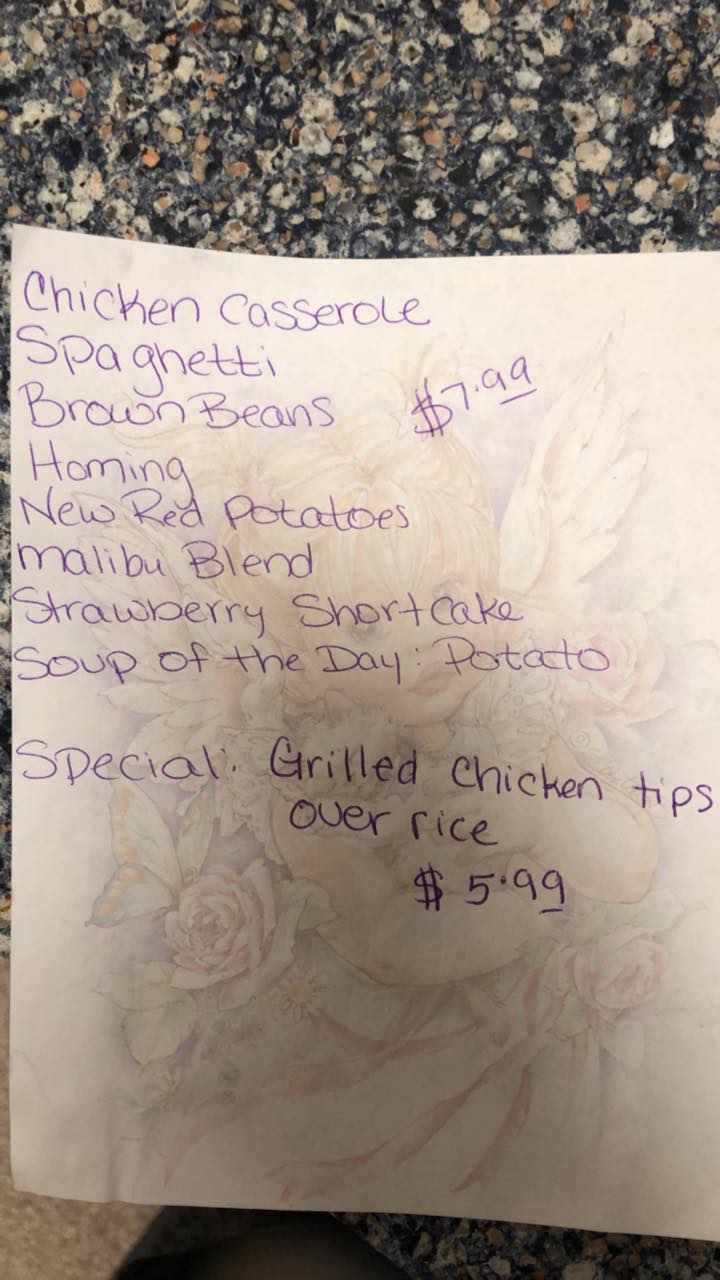 Chicken Casserole
Spaghetti
Brown Beans $7.99
Homing
New Red Potatoes
malibu Blend
Strawberry Shortcake
Soup of the Day: Potato
Special: Grilled Chicken tips
over rice
$ 5.99